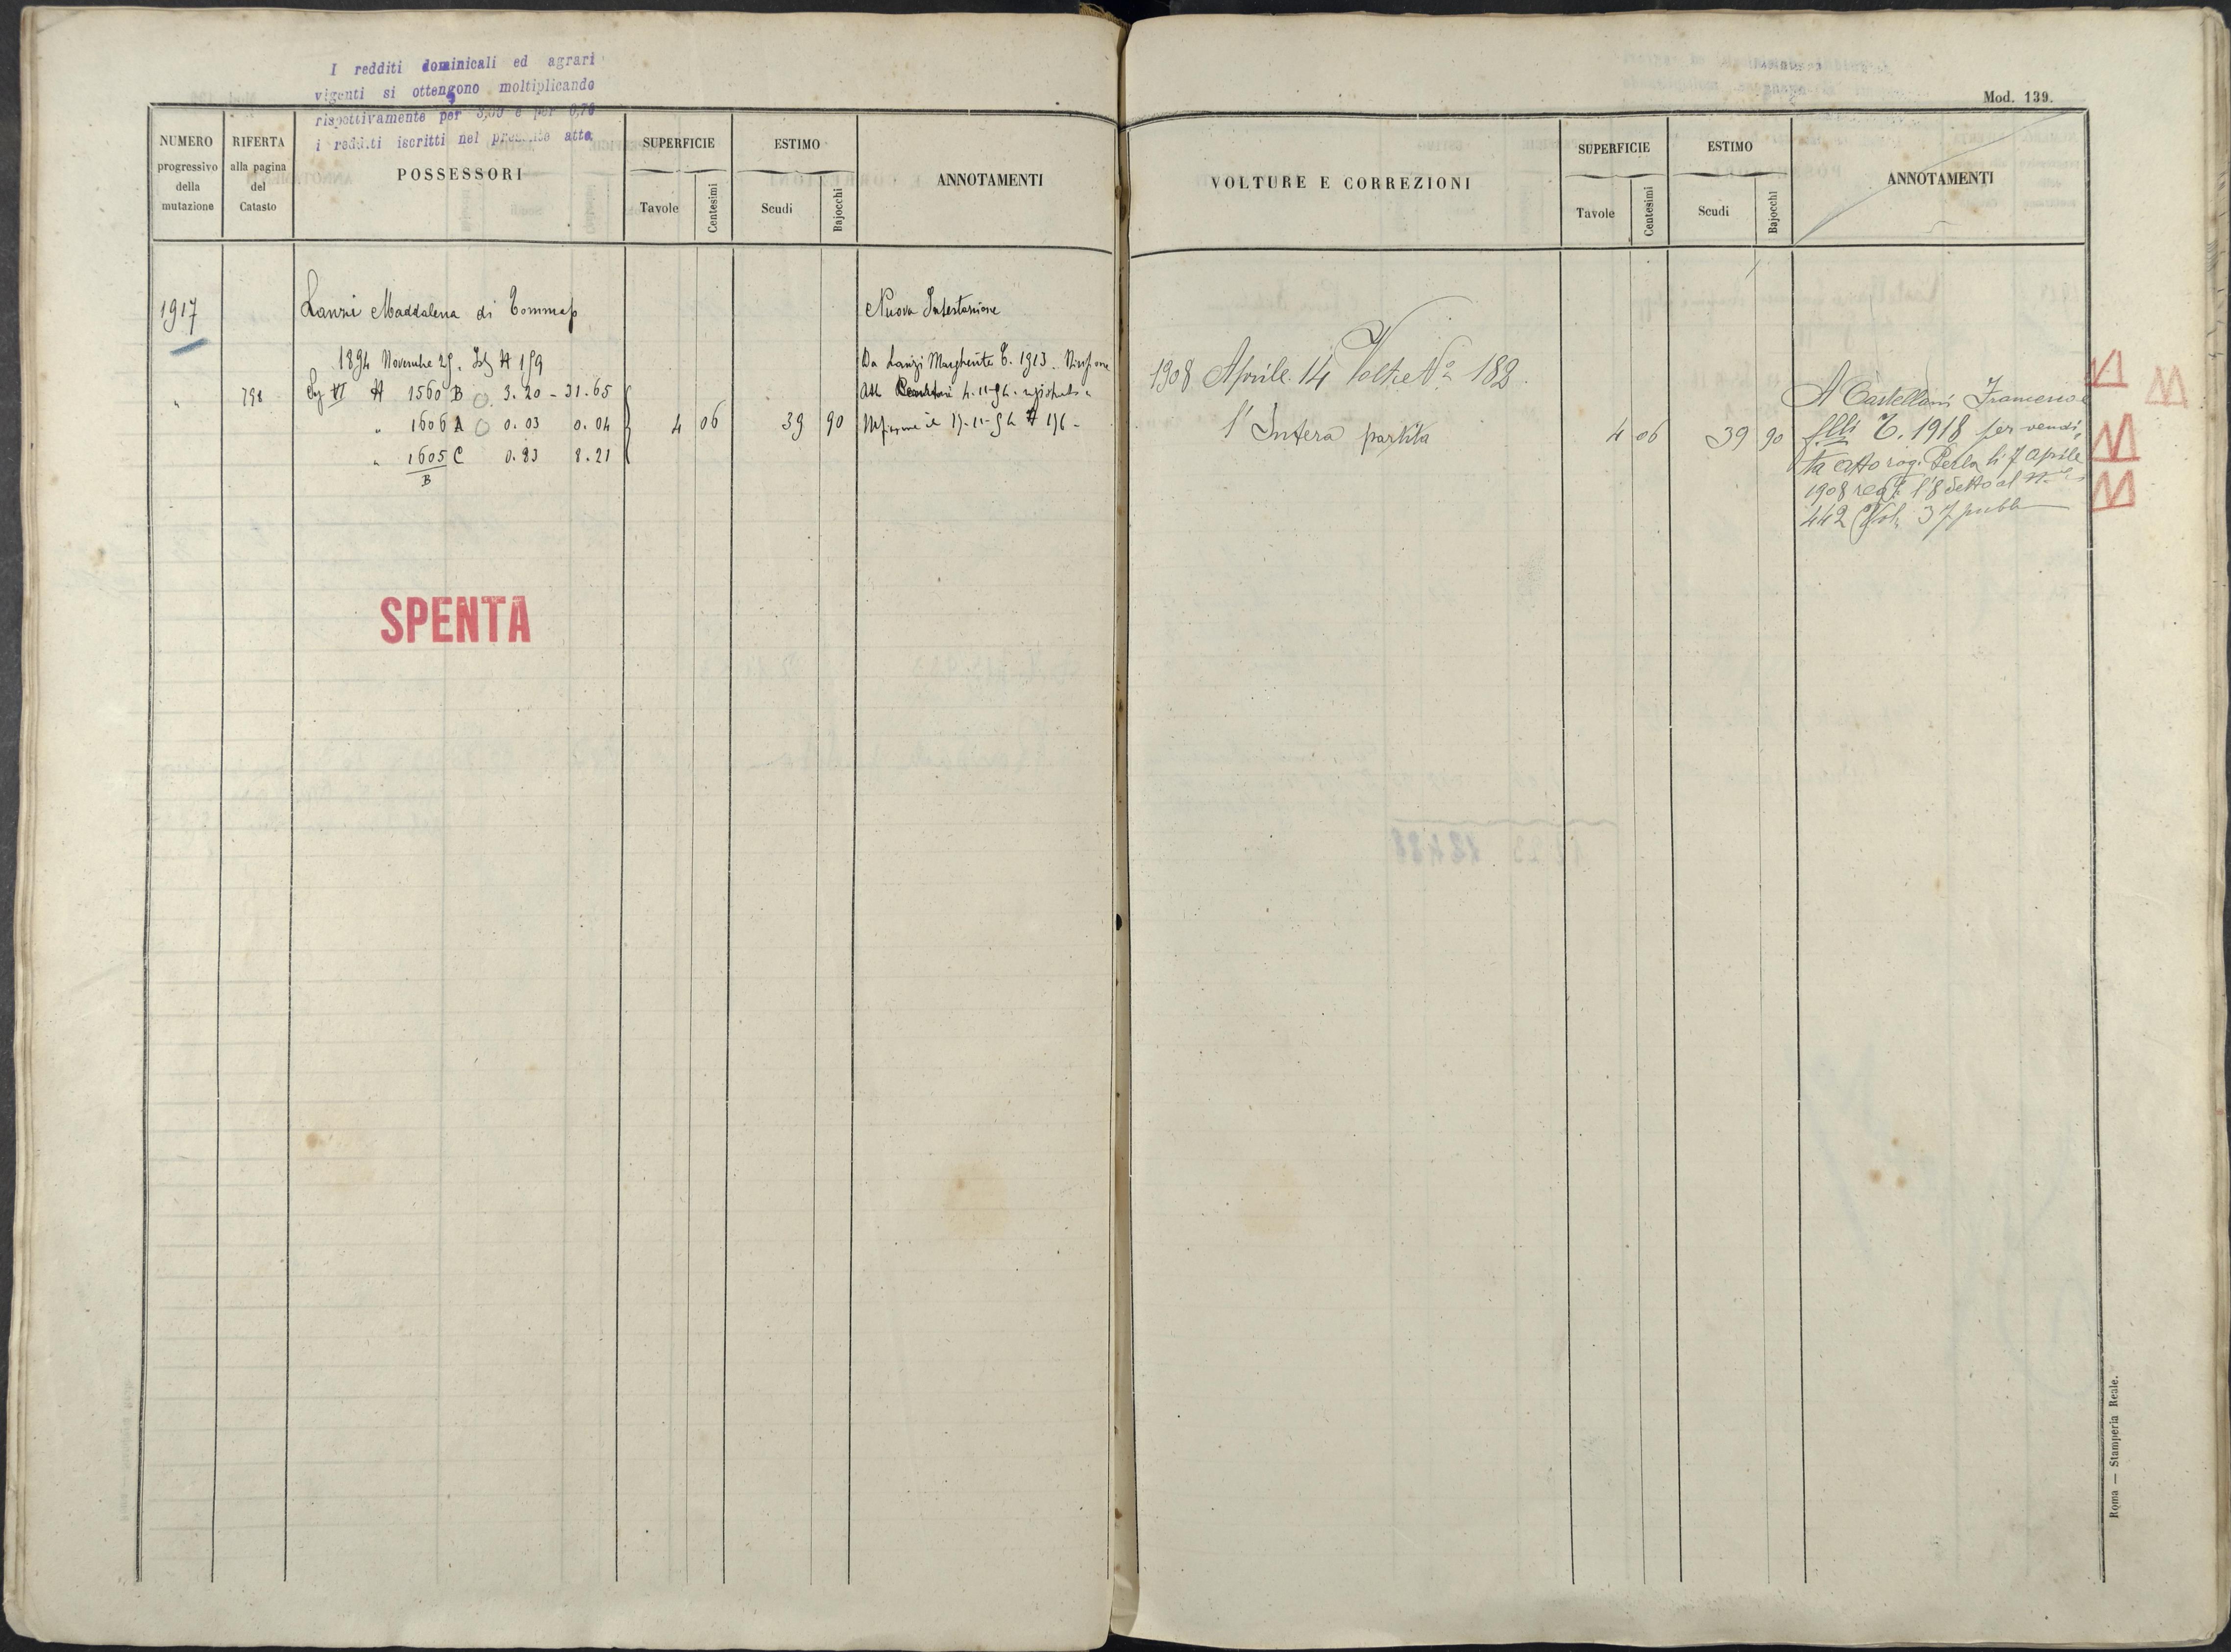 I redditi dominicali ed agrari
vigenti si ottengono moltiplicando
rispettivamente per 3,55 e per 0,76
i redditi iscritti nel presente atto
NUMERO
progressivo
della
mutazione
RIFERTA
alla pagina
del
Catasto
POSSESSORI
SUPERFICIE
Tavole
Centesimi
ESTIMO
Scudi
Bajocchi
ANNOTAMENTI
1917
Lanzi Maddalena di Tommaso
Nuova Intestazione
1894 Novembre 29.
Da Lanzi Margherita T. 1913.
" 798 VI 1560 B 3.20 - 31.65
" 1606 A 0.03 0.04 4 06 39 90
" 1605 C 0.83 8.21
B
SPENTA
Mod. 139.
VOLTURE E CORREZIONI
SUPERFICIE
Tavole
Centesimi
ESTIMO
Scudi
Bajocchi
ANNOTAMENTI
1908 Aprile 14 Volt.e N° 182.
l'Intera partita 4 06 39 90
A Castellani Francesco e
f.lli T. 1918 per vendi
ta atto rog. Perla li 7 aprile
1908 reg. l'8 detto al n.
442 Vol. 37 pubb
Roma — Stamperia Reale.